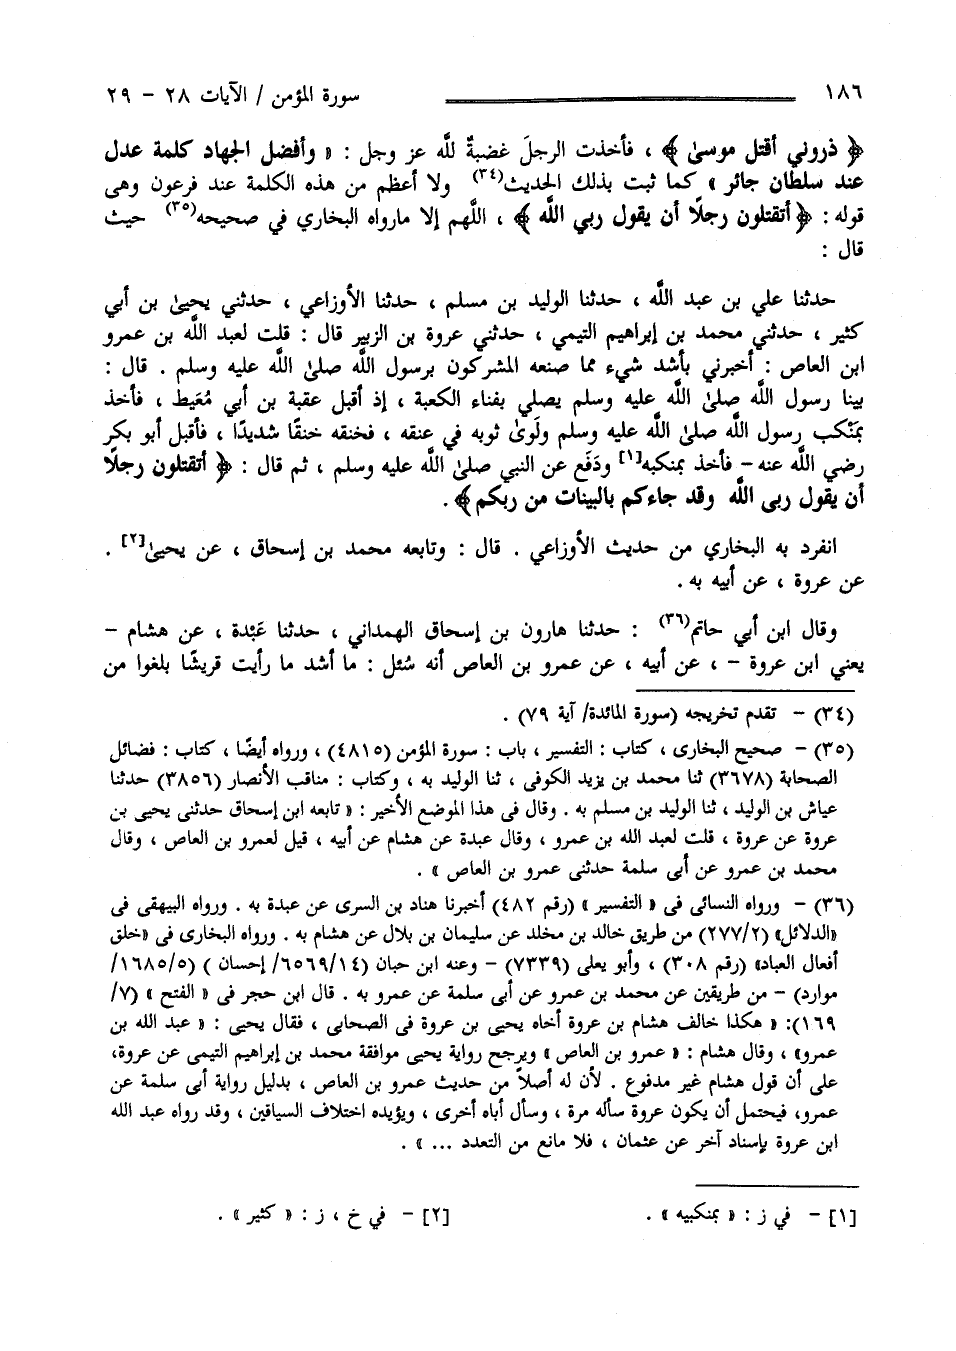 ١٨٦ سورة المؤمن / الآيات ٢٨ - ٢٩
﴿ ذروني أقتل موسىٰ ﴾ ، فأخذت الرجلَ غضبةٌ للَّه عز وجل : « وأفضل الجهاد كلمة عدل
عند سلطان جائر » كما ثبت بذلك الحديث(٣٤) ولا أعظم من هذه الكلمة عند فرعون وهى
قوله : ﴿ أتقتلون رجلًا أن يقول ربي اللَّه ﴾ ، اللَّهم إلا مارواه البخاري في صحيحه(٣٥) حيث
قال :
حدثنا علي بن عبد اللَّه ، حدثنا الوليد بن مسلم ، حدثنا الأوزاعي ، حدثني يحيىٰ بن أبي
كثير ، حدثني محمد بن إبراهيم التيمي ، حدثني عروة بن الزبير قال : قلت لعبد اللَّه بن عمرو
ابن العاص : أخبرني بأشد شيء مما صنعه المشركون برسول اللَّه صلىٰ اللَّه عليه وسلم . قال :
بينا رسول اللَّه صلىٰ اللَّه عليه وسلم يصلي بفناء الكعبة ، إذ أقبل عقبة بن أبي مُعَيط ، فأخذ
بمَنْكب رسول اللَّه صلىٰ اللَّه عليه وسلم ولَوىٰ ثوبه في عنقه ، فخنقه خنقًا شديدًا ، فأقبل أبو بكر
رضي اللَّه عنه - فأخذ بمنكبه[١] ودَفَع عن النبي صلىٰ اللَّه عليه وسلم ، ثم قال : ﴿ أتقتلون رجلًا
أن يقول ربى اللَّه وقد جاءكم بالبينات من ربكم ﴾ .
انفرد به البخاري من حديث الأوزاعي . قال : وتابعه محمد بن إسحاق ، عن يحيىٰ[٢] .
عن عروة ، عن أبيه به .
وقال ابن أبي حاتم(٣٦) : حدثنا هارون بن إسحاق الهمداني ، حدثنا عَبْدة ، عن هشام -
يعني ابن عروة - ، عن أبيه ، عن عمرو بن العاص أنه سُئل : ما أشد ما رأيت قريشًا بلغوا من
(٣٤) - تقدم تخريجه (سورة المائدة/ آية ٧٩) .
(٣٥) - صحيح البخارى ، كتاب : التفسير ، باب : سورة المؤمن (٤٨١٥) ، ورواه أيضًا ، كتاب : فضائل
الصحابة (٣٦٧٨) ثنا محمد بن يزيد الكوفى ، ثنا الوليد به ، وكتاب : مناقب الأنصار (٣٨٥٦) حدثنا
عياش بن الوليد ، ثنا الوليد بن مسلم به . وقال فى هذا الموضع الأخير : « تابعه ابن إسحاق حدثنى يحيى بن
عروة عن عروة ، قلت لعبد الله بن عمرو ، وقال عبدة عن هشام عن أبيه ، قيل لعمرو بن العاص ، وقال
محمد بن عمرو عن أبى سلمة حدثنى عمرو بن العاص » .
(٣٦) - ورواه النسائى فى « التفسير » (رقم ٤٨٢) أخبرنا هناد بن السرى عن عبدة به . ورواه البيهقى فى
«الدلائل» (٢٧٧/٢) من طريق خالد بن مخلد عن سليمان بن بلال عن هشام به . ورواه البخارى فى «خلق
أفعال العباد» (رقم ٣٠٨) ، وأبو يعلى (٧٣٣٩) - وعنه ابن حبان (٦٥٦٩/١٤/ إحسان ) (١٦٨٥/٥/
موارد) - من طريقين عن محمد بن عمرو عن أبى سلمة عن عمرو به . قال ابن حجر فى « الفتح » (٧/
١٦٩): « هكذا خالف هشام بن عروة أخاه يحيى بن عروة فى الصحابى ، فقال يحيى : « عبد الله بن
عمرو» ، وقال هشام : « عمرو بن العاص » ويرجح رواية يحيى موافقة محمد بن إبراهيم التيمى عن عروة،
على أن قول هشام غير مدفوع . لأن له أصلاً من حديث عمرو بن العاص ، بدليل رواية أبى سلمة عن
عمرو، فيحتمل أن يكون عروة سأله مرة ، وسأل أباه أخرى ، ويؤيده اختلاف السياقين ، وقد رواه عبد الله
ابن عروة بإسناد آخر عن عثمان ، فلا مانع من التعدد ... » .
[١] - في ز : « بمنكبيه » . [٢] - في خ ، ز : « كثير » .